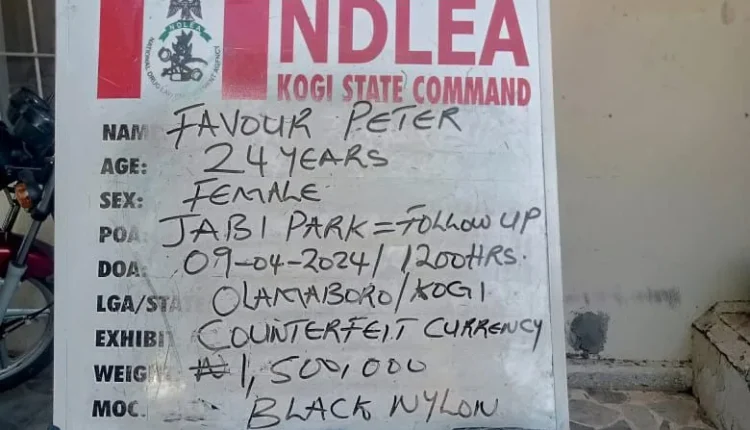 NDLEA
KOGI STATE COMMAND
NDLEA
NATIONAL DRUG LAW ENFORCEMENT AGENCY
NAM FAVOUR PETER
AGE: 24 YEARS
SEX: FEMALE
POA: JABI PARK = FOLLOW UP
DOA: 09-04-2024/1200HRS.
LGA/STATE OLAMABORO/KOGI
EXHIBIT COUNTERFEIT CURRENCY
WEIG ₦1,500,000
MOC. BLACK NYLON